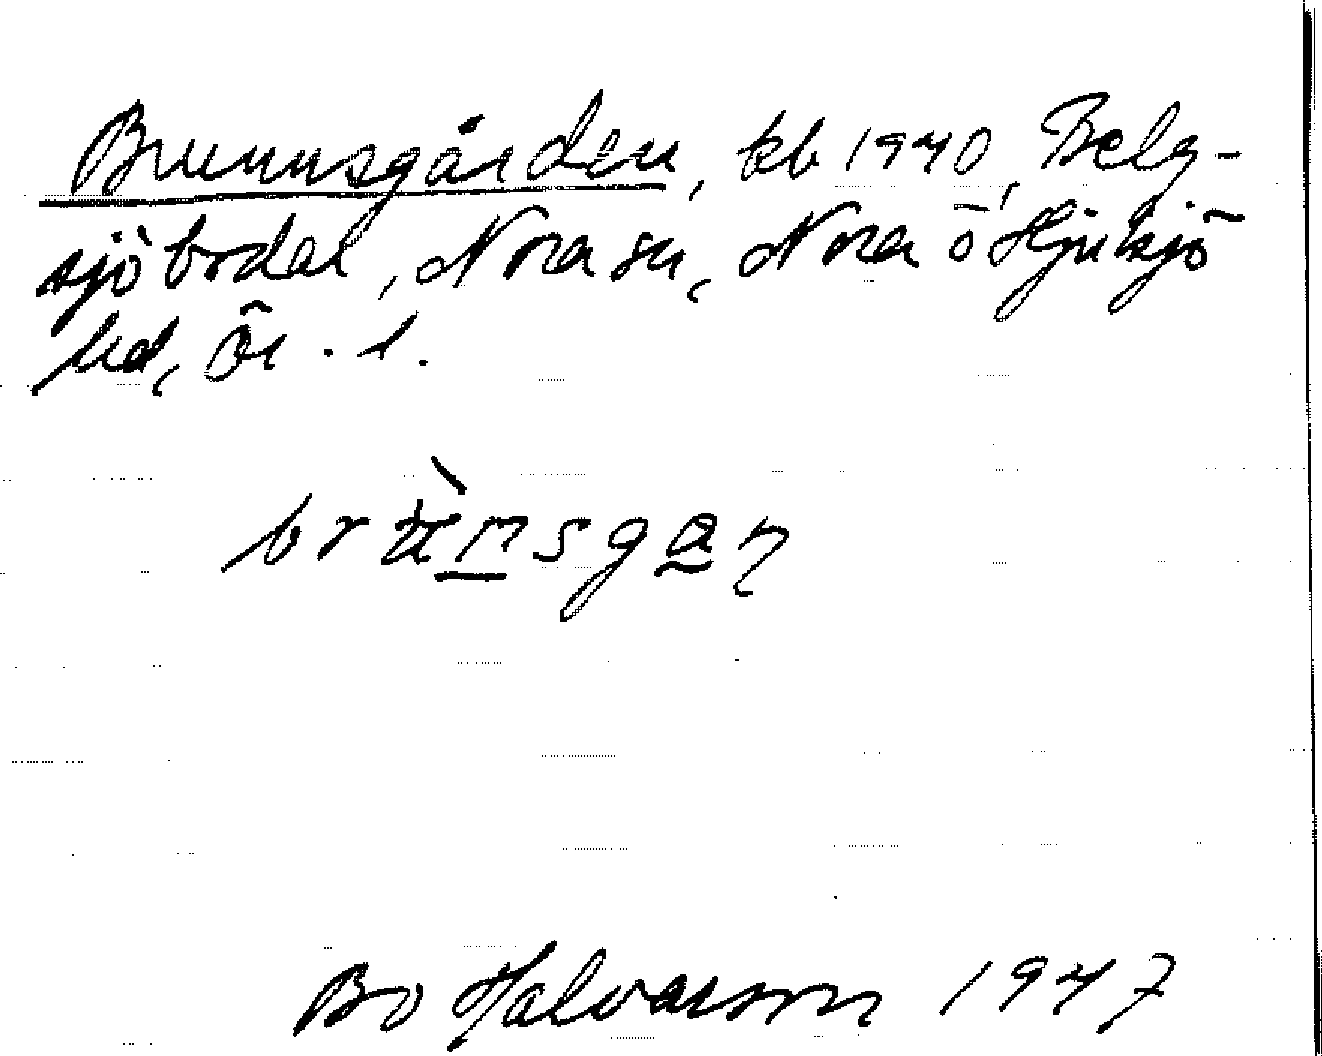 Brunnsgården, kb 1940, Belg-
sjöbodar, Nora sn, Nora o Hjulsjö
hd, Ör. l.
Bo Halvarson 1947